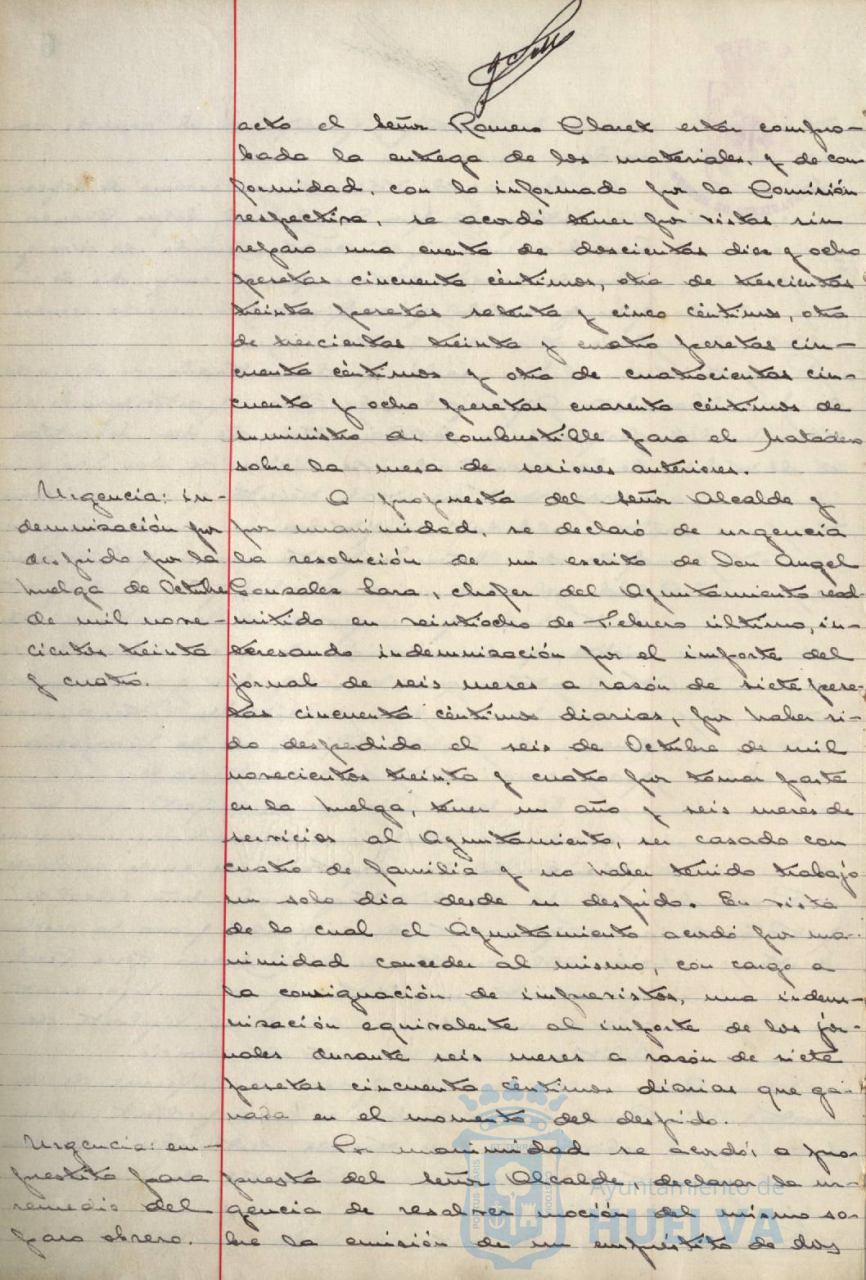 acto el señor Romero Claret estar compro-
bada la entrega de los materiales, y de con
formidad, con lo informado por la Comisión
respectiva, se acordó tener por vistas sin
reparo una cuenta de doscientas diez y ocho
pesetas cincuenta céntimos, otra de trescientas
treinta pesetas setenta y cinco céntimos, otra
de trescientas treinta y cuatro pesetas cin-
cuenta céntimos y otra de cuatrocientas cin-
cuenta y ocho pesetas cuarenta céntimos de
suministro de combustible para el Matadero
sobre la mesa de sesiones anteriores.
Urgencia: in-
demnización por
despido por la
huelga de Octubre
de mil nove-
cientos treinta
y cuatro.
A propuesta del señor Alcalde y
por unanimidad, se declaró de urgencia
la resolución de un escrito de Don Angel
Gonzales Lara, chofer del Ayuntamiento read-
mitido en veintiocho de Febrero último, in-
teresando indemnización por el importe del
jornal de seis meses a razón de siete pese-
tas cincuenta céntimos diarias, por haber si-
do despedido el seis de Octubre de mil
novecientos treinta y cuatro por tomar parte
en la huelga, tener un año y seis meses de
servicios al Ayuntamiento, ser casado con
cuatro de familia y no haber tenido trabajo
un solo dia desde su despido. En vista
de lo cual el Ayuntamiento acordó por una-
nimidad conceder al mismo, con cargo a
la consignación de imprevistos, una indem-
nización equivalente al importe de los jor-
nales durante seis meses a razón de siete
pesetas cincuenta céntimos diarias que ga-
naba en el momento del despido.
Urgencia: em-
prestito para
remedio del
paro obrero.
Por unanimidad se acordó, a pro-
puesta del señor Alcalde declarar de ur-
gencia de resolver moción del mismo so-
bre la emisión de un empréstito de dos
Ayuntamiento de
HUELVA